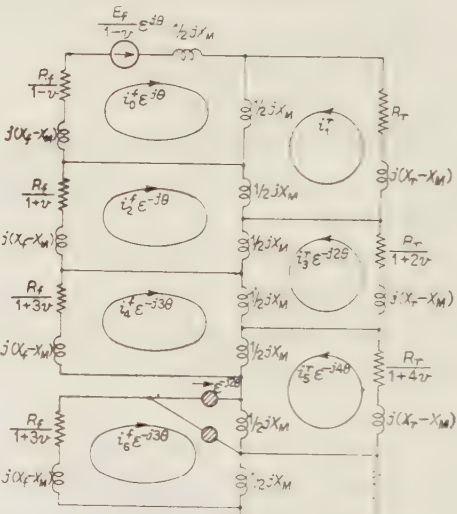 E_f/(1-v) ε^{jθ} 1/2 jX_M
R_f/(1-v)
j(X_f-X_M)
i_0^f ε^{jθ}
1/2 jX_M
i_1^r
R_r
j(X_r-X_M)
R_f/(1+v)
j(X_f-X_M)
i_2^f ε^{-jθ}
1/2 jX_M
1/2 jX_M
i_3^r ε^{-j2θ}
R_r/(1+2v)
j(X_r-X_M)
R_f/(1+3v)
j(X_f-X_M)
i_4^f ε^{-j3θ}
1/2 jX_M
1/2 jX_M
i_5^r ε^{-j4θ}
R_r/(1+4v)
j(X_r-X_M)
ε^{-j2θ}
R_f/(1+3v)
j(X_f-X_M)
i_6^f ε^{-j3θ}
1/2 jX_M
1/2 jX_M